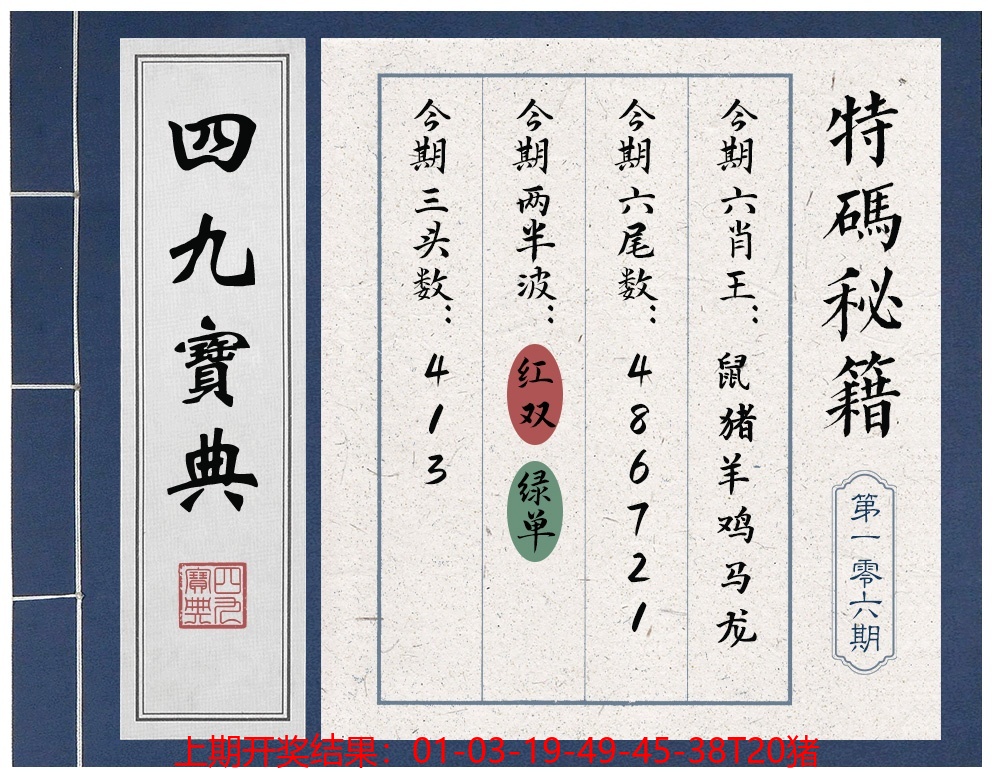 特碼秘籍
第一零六期
今期六肖王：鼠猪羊鸡马龙
今期六尾数：486721
今期两半波：红双 绿单
今期三头数：413
四九寶典
四九寶典
上期开奖结果：01-03-19-49-45-38T20猪